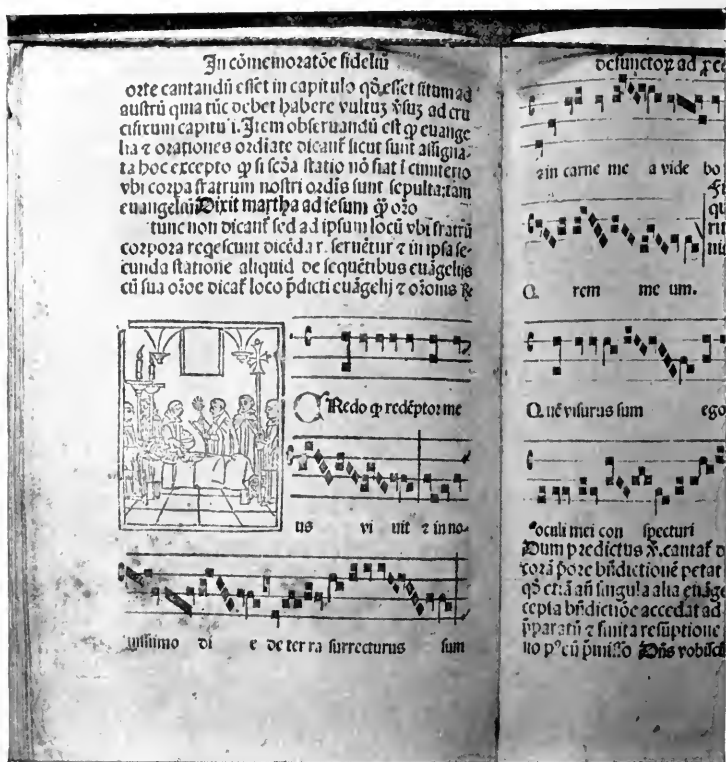 In cõmemoratõe fideliũ
orte cantandũ esset in capitulo qđ esset situm ad
austrũ quia tũc debet habere vultuʒ ṽsuʒ ad cru
cifixum capitu i. Item obseruandũ est ꝙ euange
lia ⁊ orationes ordiate dicant̃ sicut sunt assigna-
ta hoc excepto ꝙ si scđa statio nõ fiat ĩ cimiterio
vbi corpa fratrum nostri ordĩs sunt sepulta: tam
euangeliũ Dixit martha ad iesum ꝙ oro
tunc non dicant̃ sed ad ipsum locũ vbi fratrũ
corpora reqescunt dicẽda r. seruẽtur ⁊ in ipsa se-
cunda statione aliquid de sequẽtibus euãgelijs
cũ sua orõe dicat̃ loco p̃dicti euãgelij ⁊ orõnis ℟
CRedo ꝙ redẽptor me
us vi uit ⁊ in no-
uissimo di e de ter ra surrecturus sum
defunctoꝝ ad
⁊ in carne me a vide bo
O. rem me um.
Q. uẽ visurus sum ego
oculi mei con specturi
Dum predictus ℣. cantat̃
corã põre bñdictionẽ petat
qđ etiã añ singula alia euãge
cepta bñdictiõe accedat ad
p̃paratũ ⁊ finita resũptione
no pꝰ cũ p̃misso Dñs vobisc